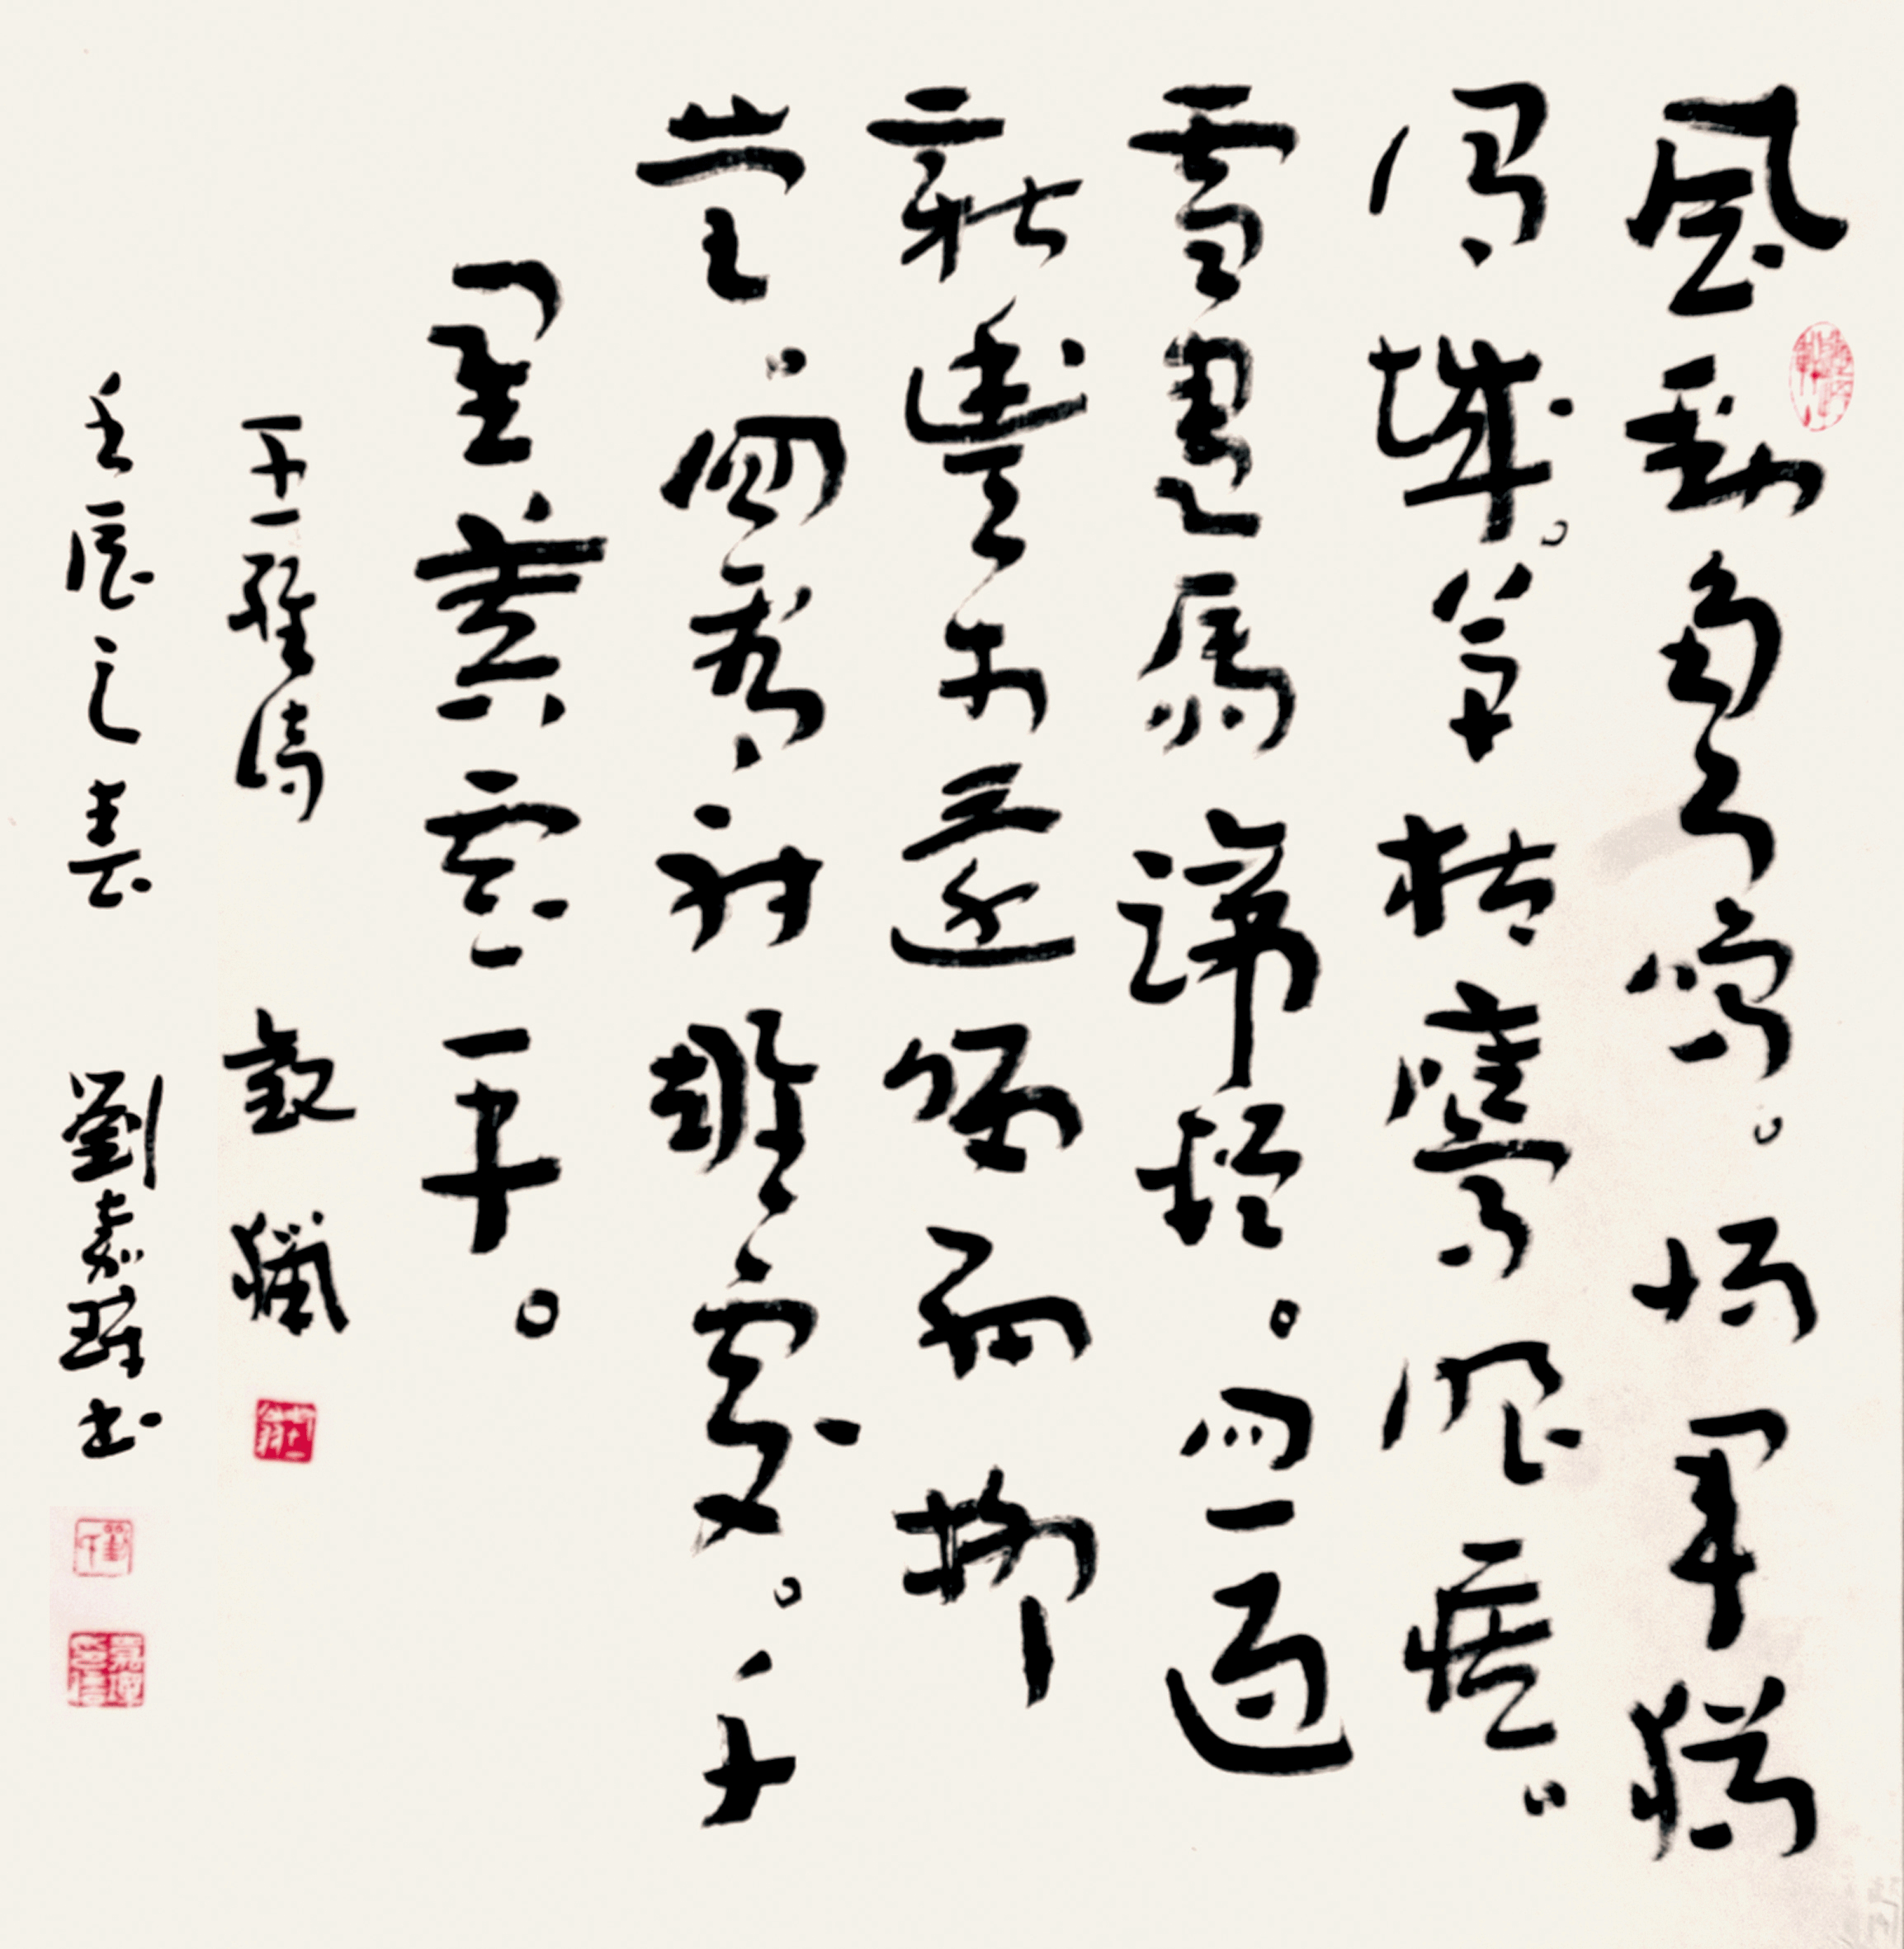 風勁角弓鳴。將軍獵
渭城。草枯鷹眼疾。
雪盡馬蹄輕。忽過
新豐市還歸細柳
營。回看射雕處。千
里暮雲平。
王維詩 觀獵
壬辰之春 劉嘉 書